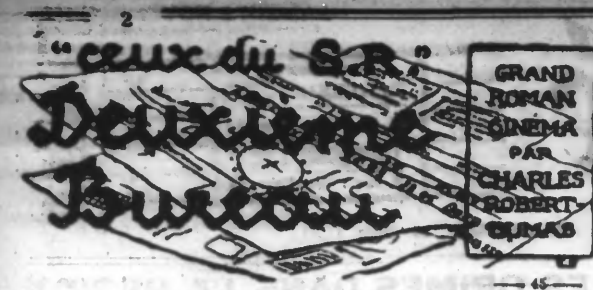 2
"ceux du S.R."
Deuxième
Bureau
GRAND
ROMAN
CINÉMA
PAR
CHARLES
ROBERT-
DUMAS
— 45 —